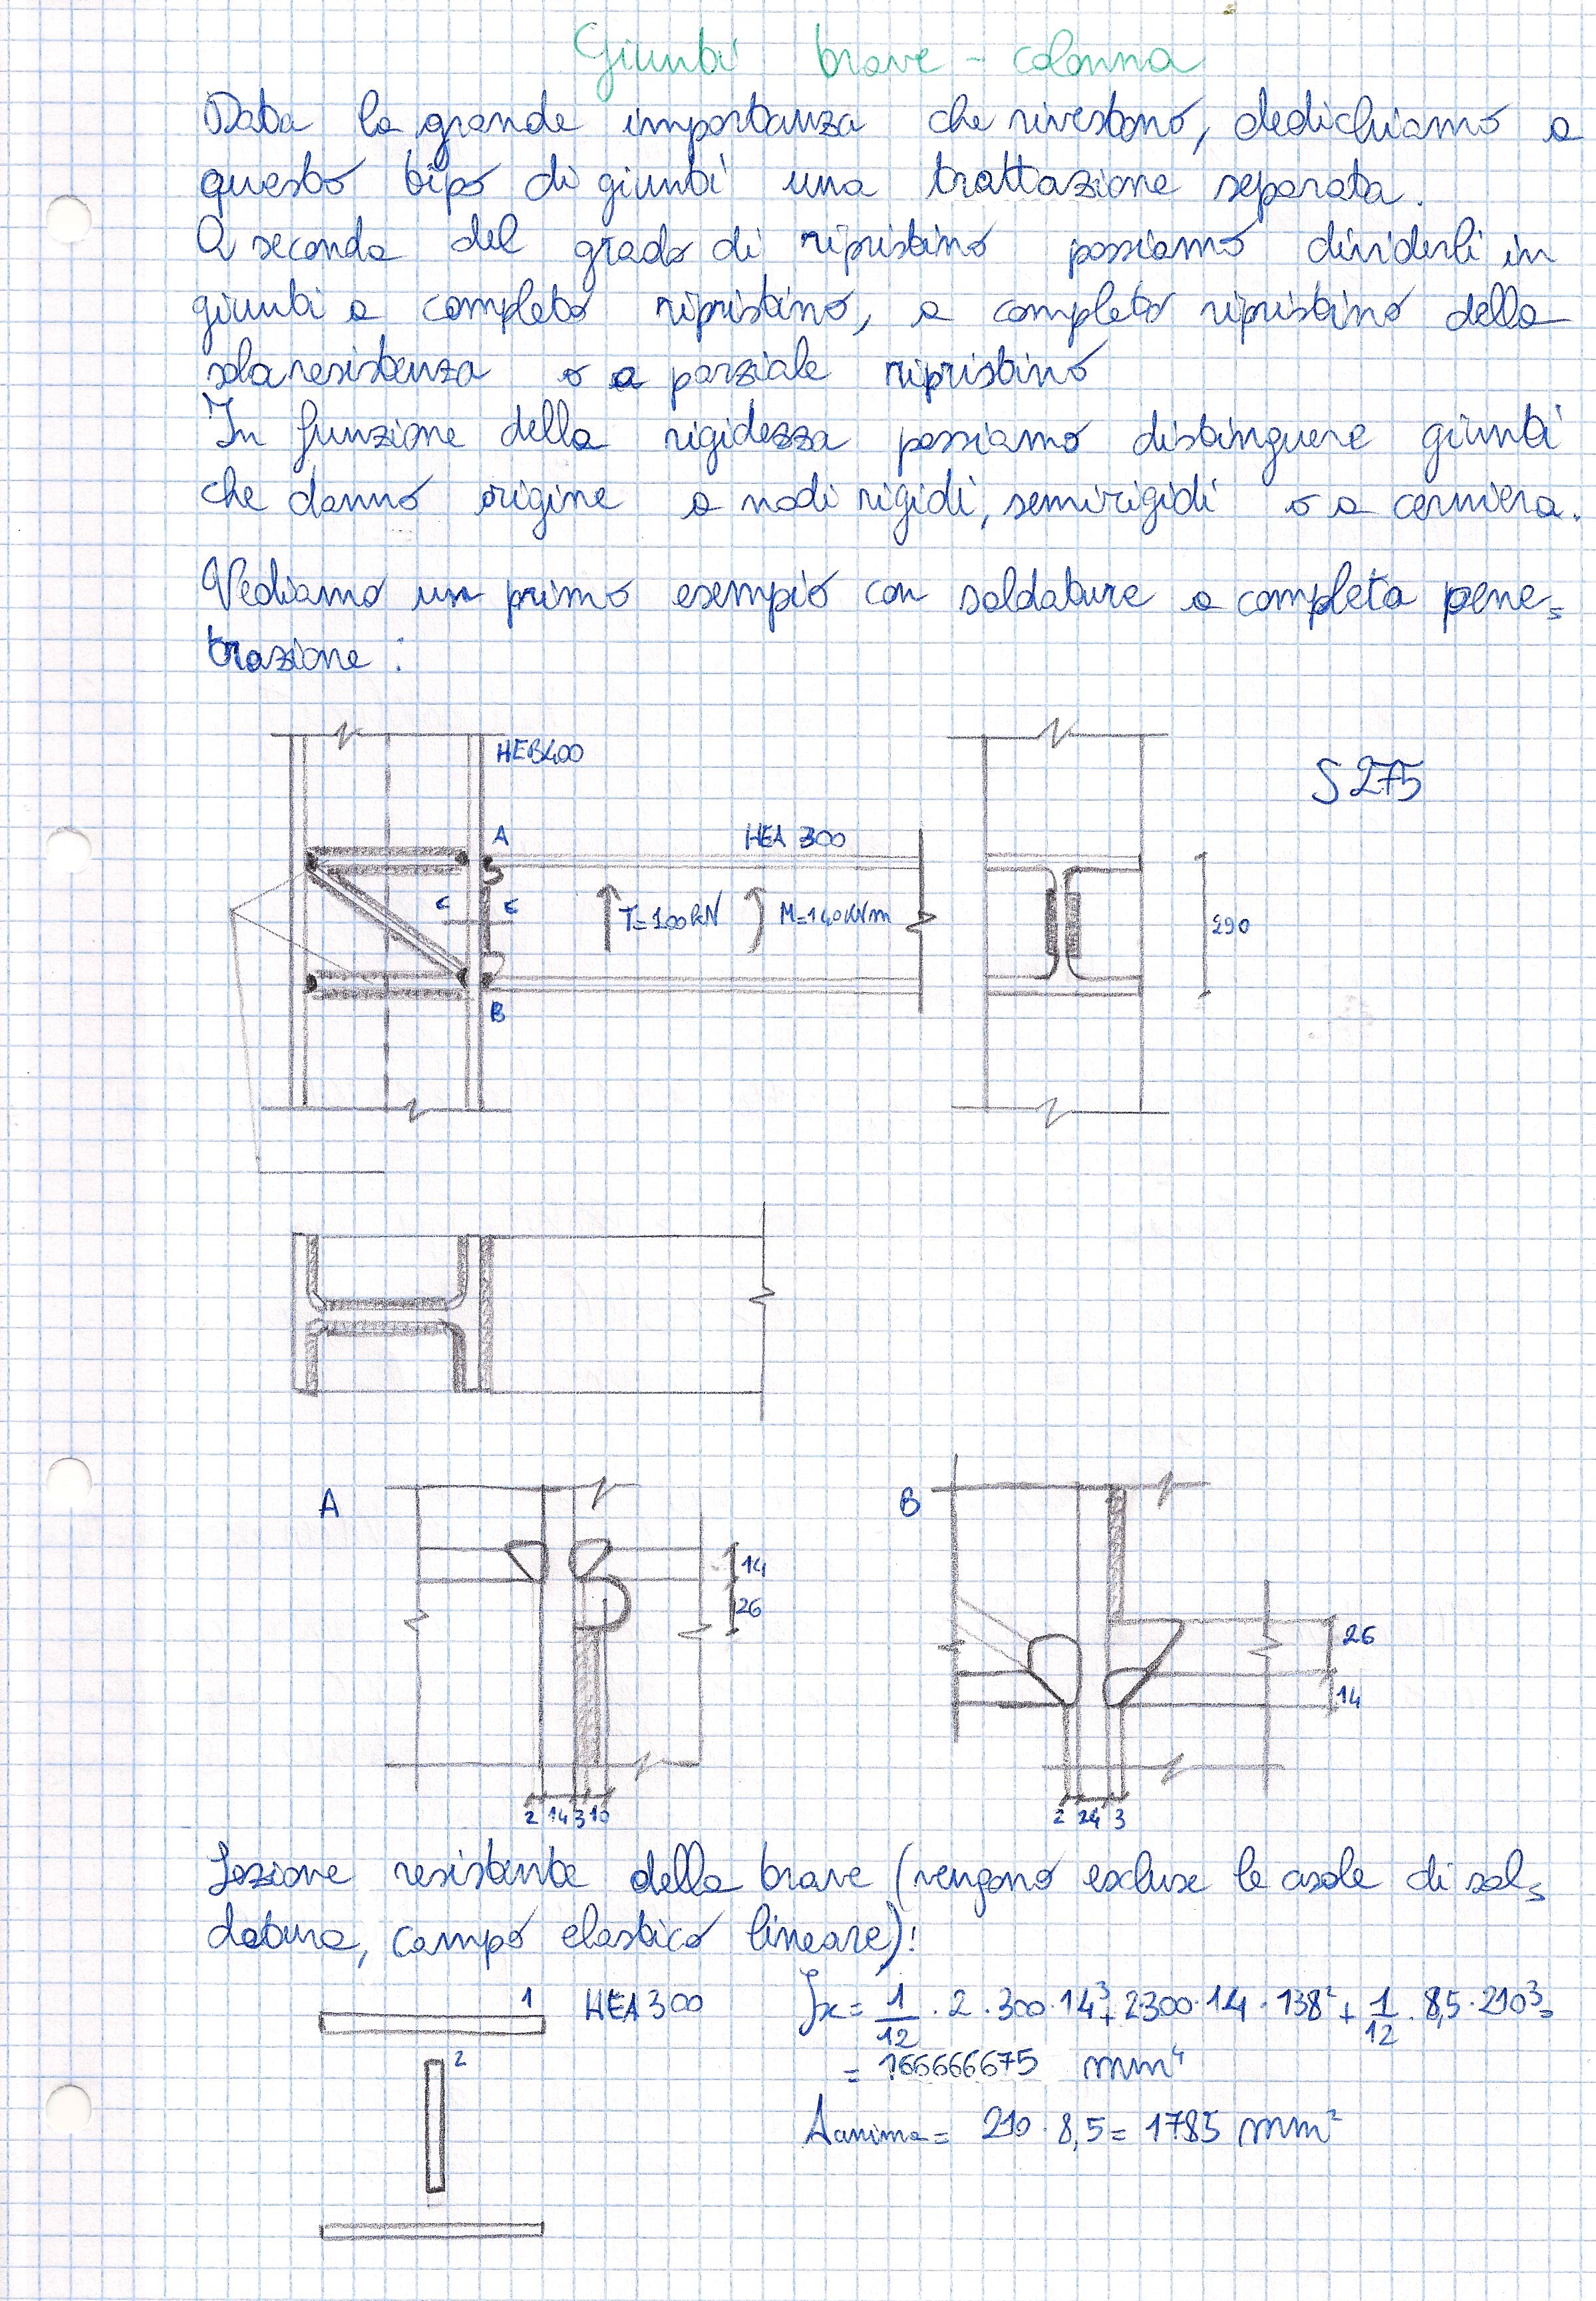 Giunti trave - colonna
Data la grande importanza che rivestono, dedichiamo a
questo tipo di giunti una trattazione separata.
A seconda del grado di ripristino possiamo dividerli in
giunti a completo ripristino, a completo ripristino della
sola resistenza o a parziale ripristino
In funzione della rigidezza possiamo distinguere giunti
che danno origine a nodi rigidi, semirigidi o a cerniera.
Vediamo un primo esempio con saldature a completa pene=
trazione:
HEB400
S275
A
HEA 300
C C
T=100kN
M=140kNm
290
B
A
B
14
26
26
14
2 14 3 10
2 24 3
Sezione resistente della trave (vengono escluse le asole di sal=
datura, campo elastico lineare):
1
HEA300
Jx = 1/12 · 2 · 300 · 14³ + 2·300 · 14 · 138² + 1/12 · 8,5 · 210³ =
2
= 166666675 mm⁴
Aanima = 210 · 8,5 = 1785 mm²